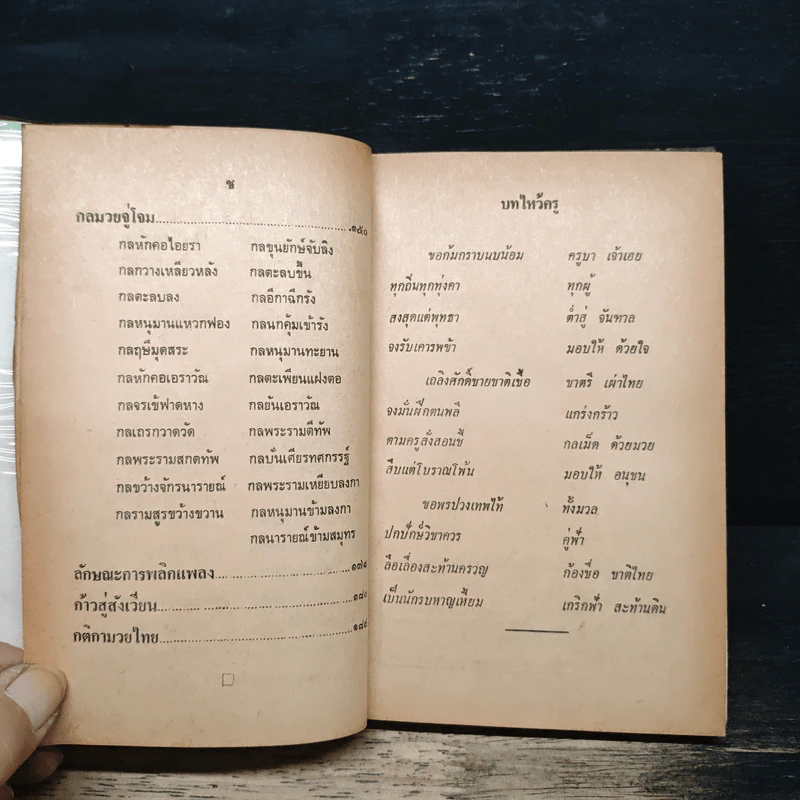 ช
กลมวยจู่โจม............................................๑๕๐
กลหักคอไอยรา กลขุนยักษ์จับลิง
กลกวางเหลียวหลัง กลตะลบขึ้น
กลตะลบลง กลอีกาฉีกรัง
กลหนุมานแหวกฟอง กลนกคุ้มเข้ารัง
กลฤษีมุดสระ กลหนุมานทะยาน
กลหักคอเอราวัณ กลตะเพียนแฝงตอ
กลจรเข้ฟาดหาง กลยันเอราวัณ
กลเถรกวาดวัด กลพระรามตีทัพ
กลพระรามสกดทัพ กลบั่นเศียรทศกรรฐ์
กลขว้างจักรนารายณ์ กลพระรามเหยียบลงกา
กลรามสูรขว้างขวาน กลหนุมานข้ามลงกา
กลนารายณ์ข้ามสมุทร
ลักษณะการพลิกแพลง
ก้าวสู่สังเวียน
กติกามวยไทย
บทไหว้ครู
ขอก้มกราบนบน้อม ครูบา เจ้าเฮย
ทุกถิ่นทุกทุ่งดา ทุกผู้
สงสุดแด่พุทธา ต่ำสู่ จันทาล
จงรับเคารพข้า มอบให้ ด้วยใจ
เถลิงศักดิ์ชายชาติเชื้อ ชาตรี เผ่าไทย
จงมั่นฝึกตนพลี แกร่งกร้าว
ตามครูสั่งสอนชี้ กลเม็ด ด้วยมวย
สืบแต่โบราณโพ้น มอบให้ อนุชน
ขอพรปวงเทพไท้ ทั้งมวล
ปกปักษ์วิชาควร คู่ฟ้า
ลือเลื่องสะท้านครวญ ก้องชื่อ ชาติไทย
เป็นนักรบหาญเหี้ยม เกริกฟ้า สะท้านดิน